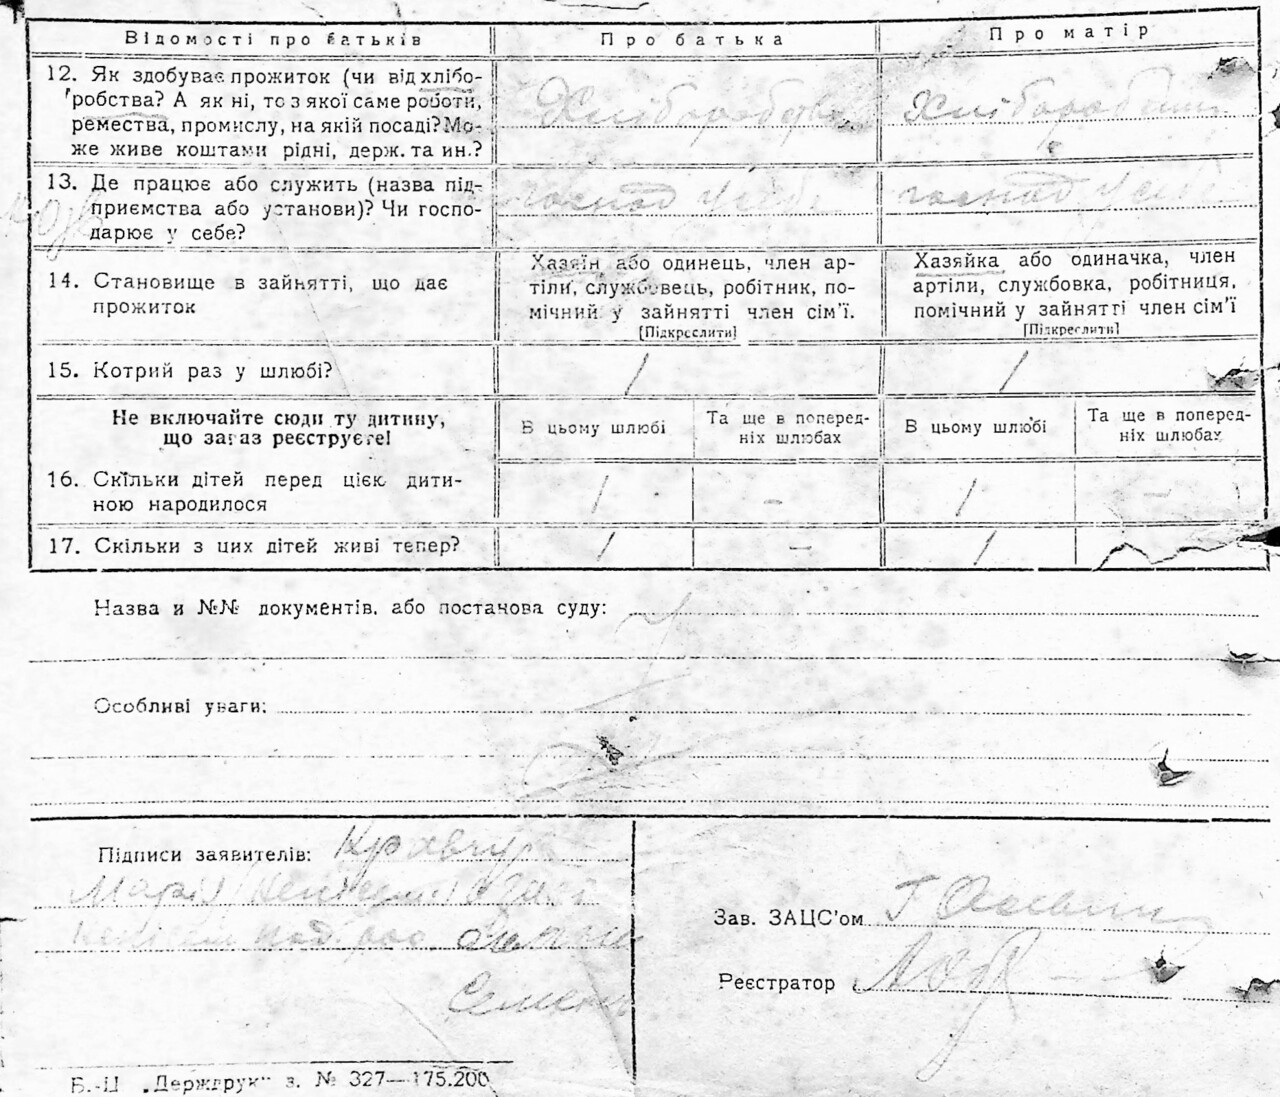 Відомості про батьків
Про батька
Про матір
12. Як здобуває прожиток (чи від хлібо-
робства? А як ні, то з якої саме роботи,
ремества, промислу, на якій посаді? Мо-
же живе коштами рідні, держ. та ин.?
Хліборобство
Хліборобство
13. Де працює або служить (назва під-
приємства або установи)? Чи госпо-
дарює у себе?
господ у себе
господ у себе
14. Становище в зайнятті, що дає
прожиток
Хазяїн або одинець, член ар-
тіли, службовець, робітник, по-
мічний у зайнятті член сім'ї.
[Підкреслити]
Хазяйка або одиначка, член
артіли, службовка, робітниця,
помічний у зайнятті член сім'ї
[Підкреслити]
15. Котрий раз у шлюбі?
1
1
Не включайте сюди ту дитину,
що зараз реєструєте!
В цьому шлюбі
Та ще в поперед-
ніх шлюбах
В цьому шлюбі
Та ще в поперед-
ніх шлюбах
16. Скільки дітей перед цією дити-
ною народилося
1
-
1
-
17. Скільки з цих дітей живі тепер?
1
-
1
Назва и №№ документів, або постанова суду:
Особливі уваги:
Підписи заявителів: Кравчук
Марія
Семен
Зав. ЗАЦС'ом
Реєстратор
Б.-Ц „Держдрук" з. № 327—175.200